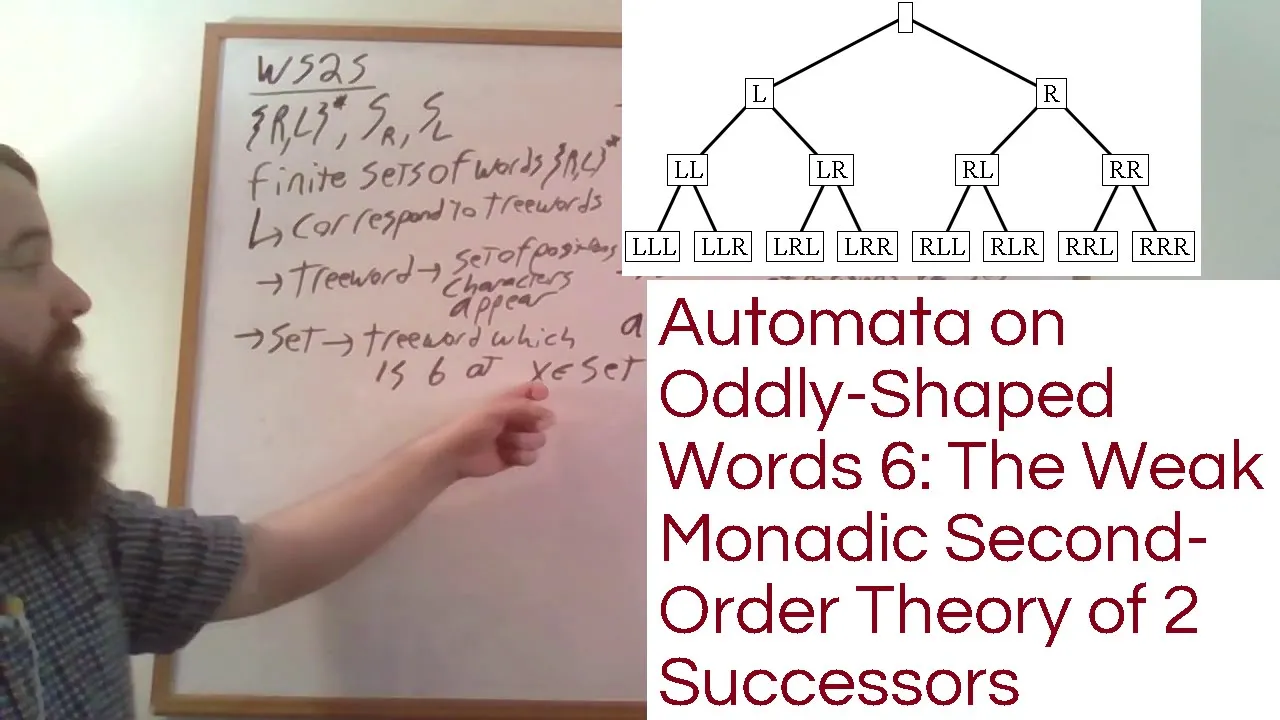 WS2S
{R,L}*, S_R, S_L
finite sets of words {R,L}*
↳ correspond to treewords
→ treeword → set of positions
characters
appear
→ set → treeword which
is b at x ∈ set
a
L R
LL LR RL RR
LLL LLR LRL LRR RLL RLR RRL RRR
Automata on
Oddly-Shaped
Words 6: The Weak
Monadic Second-
Order Theory of 2
Successors